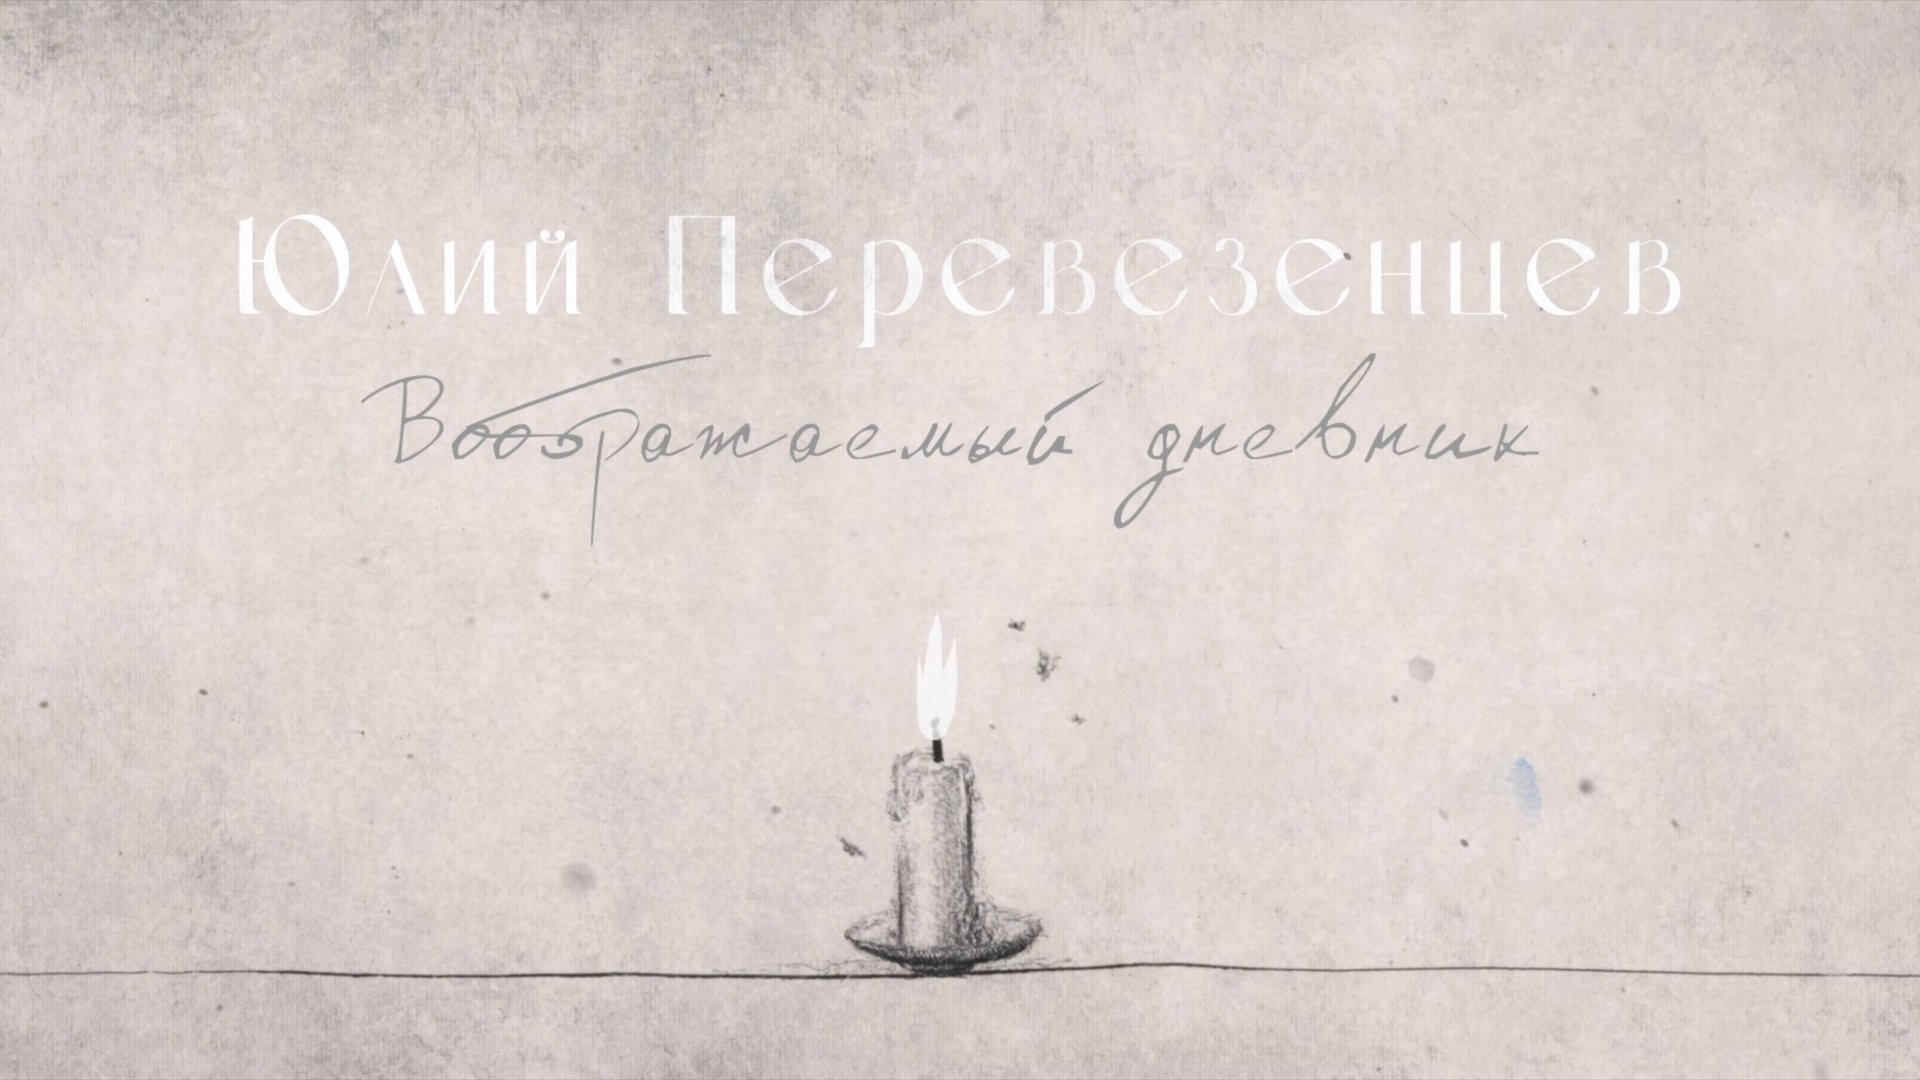 Юлий Перевезенцев
Воображаемый дневник